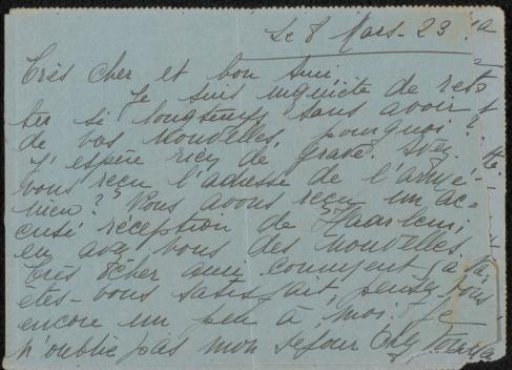 Le 8 Mars - 23.
Très cher et bon Ami,
Je suis inquiète de res-
ter si longtemps sans avoir
de vos nouvelles, pourquoi?
J'espère rien de grave. Avez-
vous reçu l'adresse de l'armé-
nien? Nous avons reçu un ac-
cusé réception de Haarlem,
en avez vous des nouvelles.
Très cher ami comment ça va,
êtes-vous satisfait, pensez vous
encore un peu à moi? Je
n'oublie pas mon séjour